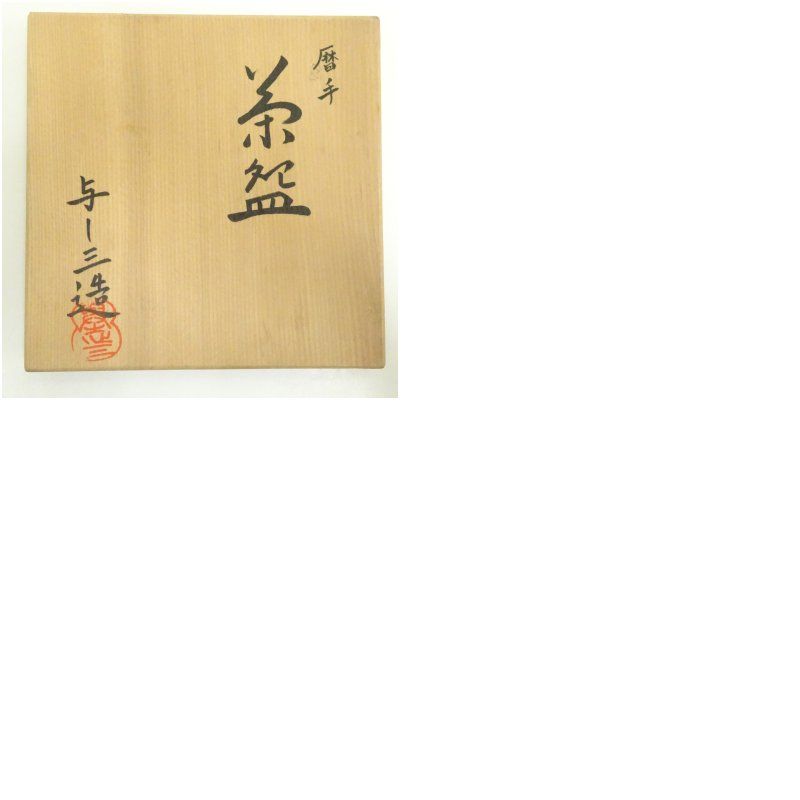 暦手
茶盌
与し三造